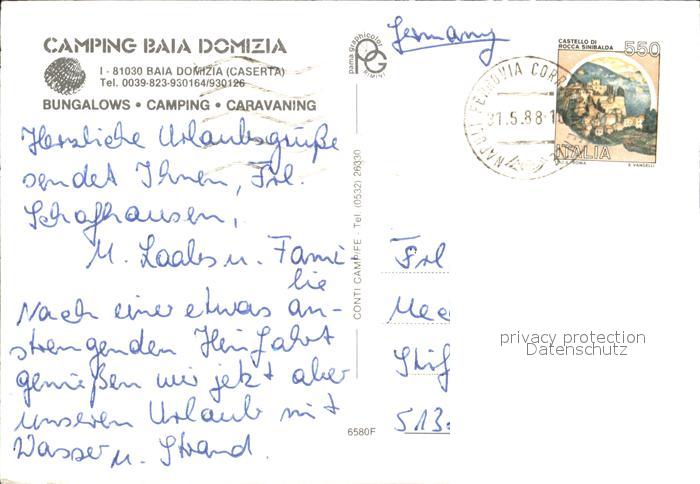 CAMPING BAIA DOMIZIA
I - 81030 BAIA DOMIZIA (CASERTA)
Tel. 0039-823-930164/930126
BUNGALOWS • CAMPING • CARAVANING
Herzliche Urlaubsgrüße
sendet Ihnen, Frl.
Schafhausen,
M. Laabs u. Fami-
lie
Nach einer etwas an-
strengenden Hinfahrt
genießen wir jetzt aber
unseren Urlaub mit
Wasser u. Strand.
pama graphicolor
RIMINI
CONTI CAMPIFE - Tel. (0532) 26930
6580F
Germany
CASTELLO DI
ROCCA SINIBALDA
550
NAPOLI FERROVIA CORR
31.5.88-1
ITALIA
ROMA
E. VANGELLI
Frl
Mec
Stif
513
privacy protection
Datenschutz